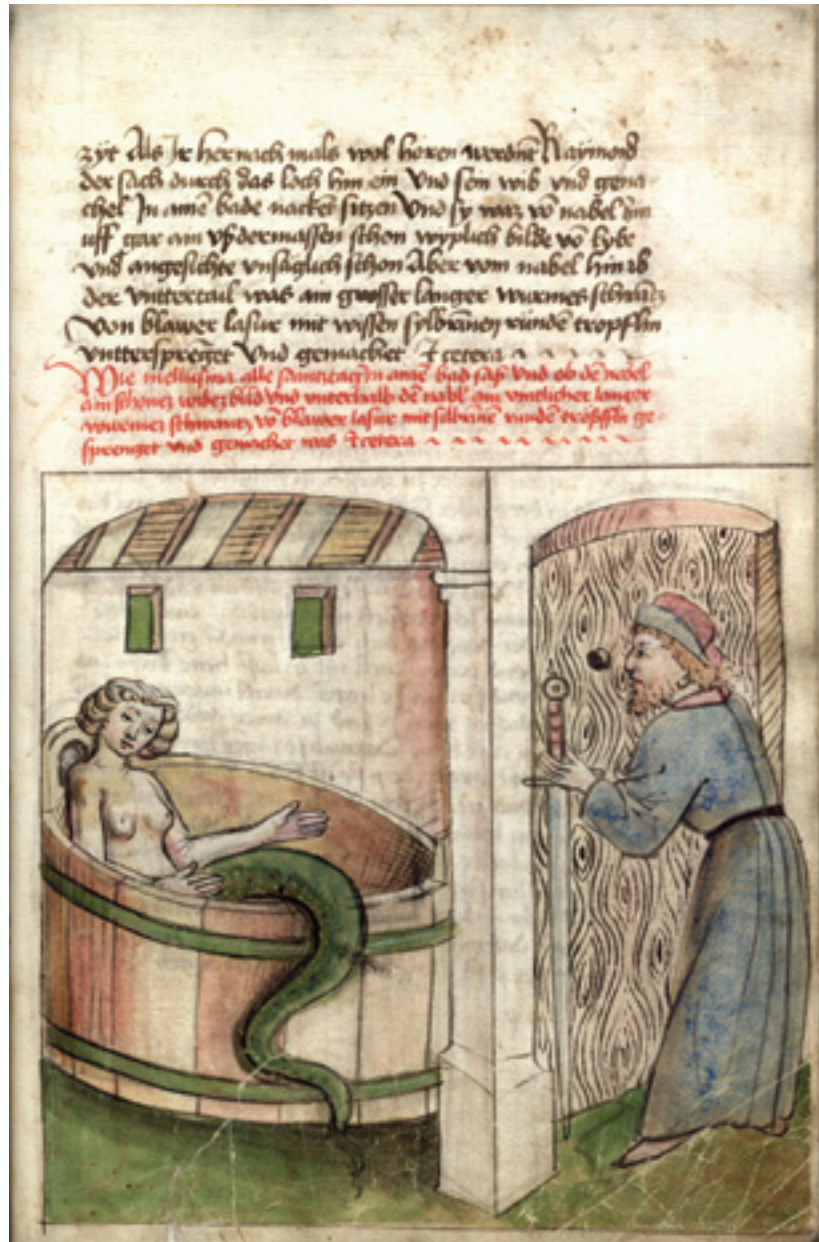 zyt Als Ir her nach mals wol horen werdent Raymond
der sach durch das loch hin ein Vnd sein wib vnd gema
chel In ainē bade nacket sitzen Vnd sy waz vō nabel hin
uff gar ain vß dermassen schon wyplich bilde vō lybe
vnd angesichte vnsäglich schon Aber vom nabel hin ab
der vntertail was ain grosser langer wurmes schwātz
Von blawer lasur mit wissen sylbrinen runden tropflin
vnttersprēget Vnd gemachet Et cetera
Wie mellusina alle samsztag in ainē bad saß Vnd ob dē nabel
ain schones wibes bild vnd vnterhalb dē nabl ain langer
wurmes schwantz vō blawer lasur mit silbrinē runden tröpfflin ge
sprenget vnd gemachet was Et cetera